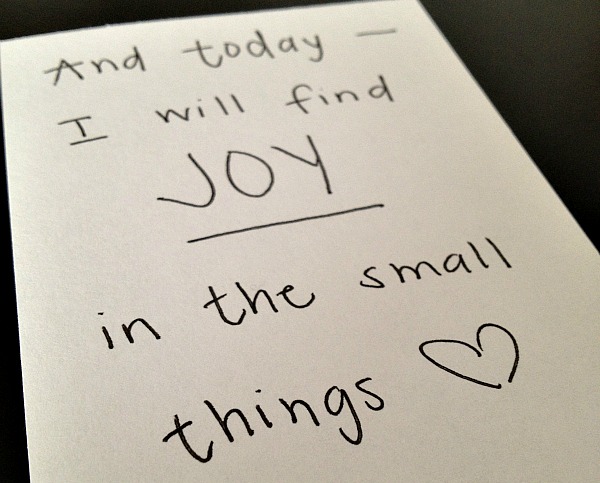 And today —
I will find
JOY
in the small
things ♡